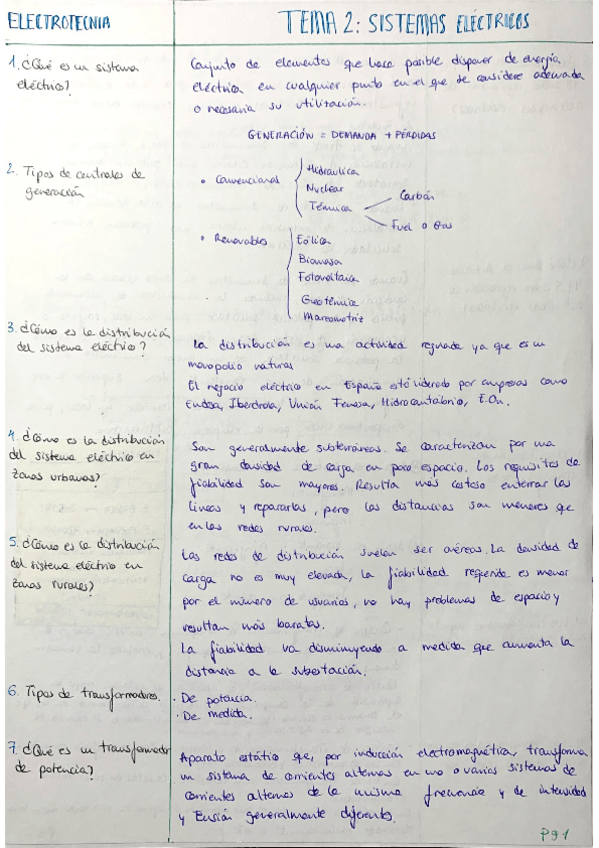 ELECTROTECNIA
TEMA 2: SISTEMAS ELÉCTRICOS
1. ¿Qué es un sistema
eléctrico?
Conjunto de elementos que hace posible disponer de energía
eléctrica en cualquier punto en el que se considere adecuada
o necesaria su utilización.
GENERACIÓN = DEMANDA + PÉRDIDAS
2. Tipos de centrales de
generación
• Convencional
Hidraulica
Nuclear
Térmica
Carbón
Fuel o Gas
• Renovables
Eólica
Biomasa
Fotovoltaica
Geotérmica
Mareomotriz
3. ¿Cómo es la distribución
del sistema eléctrico?
La distribución es una actividad regulada ya que es un
monopolio natural
El negocio eléctrico en España está liderado por empresas como
Endesa, Iberdrola, Unión Fenosa, Hidrocantábrico, E.On.
4. ¿Cómo es la distribución
del sistema eléctrico en
zonas urbanas?
Son generalmente subterráneas. Se caracterizan por una
gran densidad de carga en poco espacio. Los requisitos de
fiabilidad son mayores. Resulta más costoso enterrar las
lineas y repararlas, pero las distancias son menores que
en las redes rurales.
5. ¿Cómo es la distribución
del sistema eléctrico en
zonas rurales?
Las redes de distribución suelen ser aéreas. La densidad de
carga no es muy elevada, la fiabilidad requerida es menor
por el número de usuarios, no hay problemas de espacio y
resultan más baratas.
La fiabilidad va disminuyendo a medida que aumenta la
distancia a la subestación.
6. Tipos de transformadores.
· De potencia.
· De medida.
7. ¿Qué es un transformador
de potencia?
Aparato estático que, por inducción electromagnética, transforma
un sistema de corrientes alternas en uno o varios sistemas de
corrientes alternas de la misma frecuencia y de intensidad
y tensión generalmente diferentes.
Pg 1